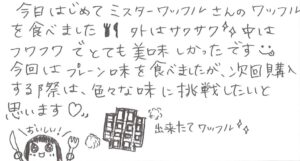 今日はじめてミスターワッフルさんのワッフル
を食べました🍴外はサクサク✨中は
フワフワでとても美味しかったです☺
今回はプレーン味を食べましたが、次回購入
する際は、色々な味に挑戦したいと
思います♡
おいしい!
出来たてワッフル✨